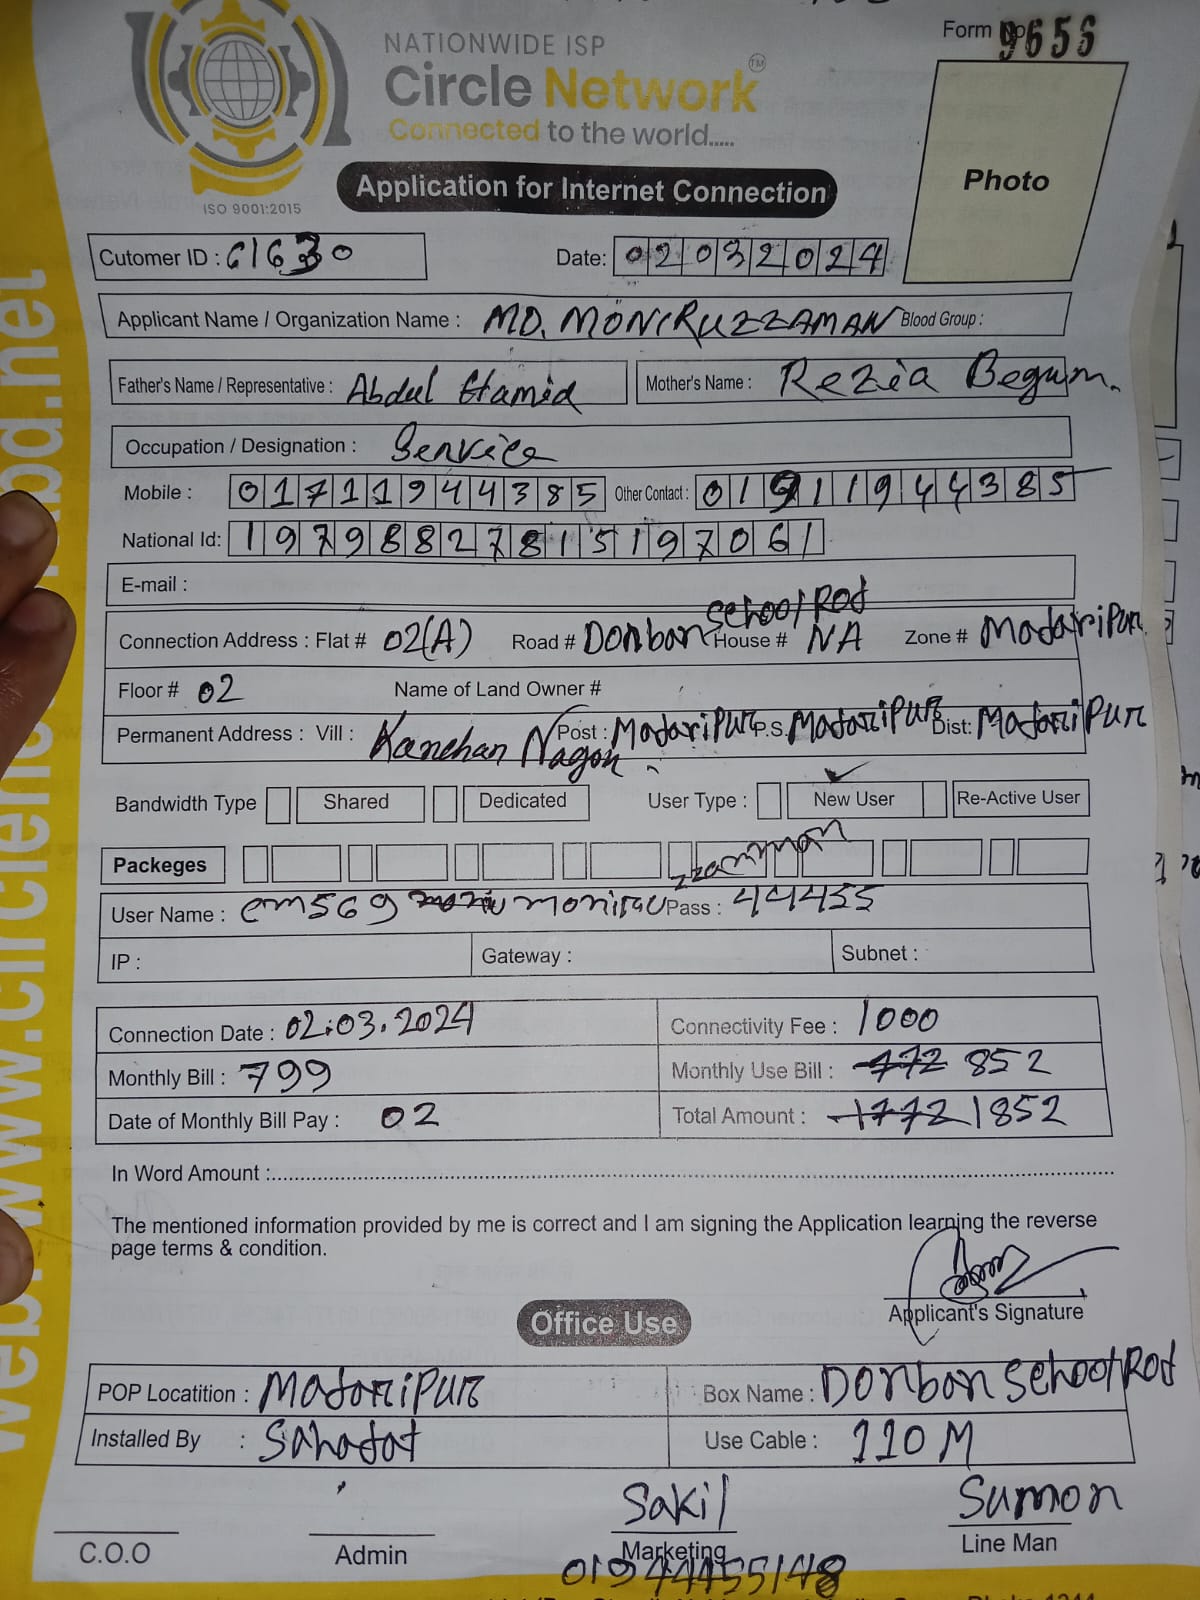 NATIONWIDE ISP
Form No 9656
Circle Network TM
Connected to the world.....
ISO 9001:2015
Application for Internet Connection
Photo
Cutomer ID : C1630
Date: 02032024
Applicant Name / Organization Name : MD. MONIRUZZAMAN Blood Group :
Father's Name / Representative : Abdul Hamid Mother's Name : Rezia Begum.
Occupation / Designation : Service
Mobile : 01711944385 Other Contact : 01911944385
National Id: 19798827815197061
E-mail :
Connection Address : Flat # 02(A) Road # Donbon School Rod House # NA Zone # Madaripur
Floor # 02 Name of Land Owner #
Permanent Address : Vill : Kanchan Nagon Post : Madaripur P.S. Madaripur Dist: Madaripur
Bandwidth Type Shared Dedicated User Type : New User Re-Active User
Packeges
User Name : cm569 moniruzzamman Pass : 44455
IP : Gateway : Subnet :
Connection Date : 02.03.2024 Connectivity Fee : 1000
Monthly Bill : 799 Monthly Use Bill : 772 852
Date of Monthly Bill Pay : 02 Total Amount : 1772 1852
In Word Amount :
The mentioned information provided by me is correct and I am signing the Application learning the reverse
page terms & condition.
Applicant's Signature
Office Use
POP Locatition : Madaripur Box Name : Donbon School Rod
Installed By : Sahadat Use Cable : 110 M
Sakil Sumon
C.O.O Admin Marketing Line Man